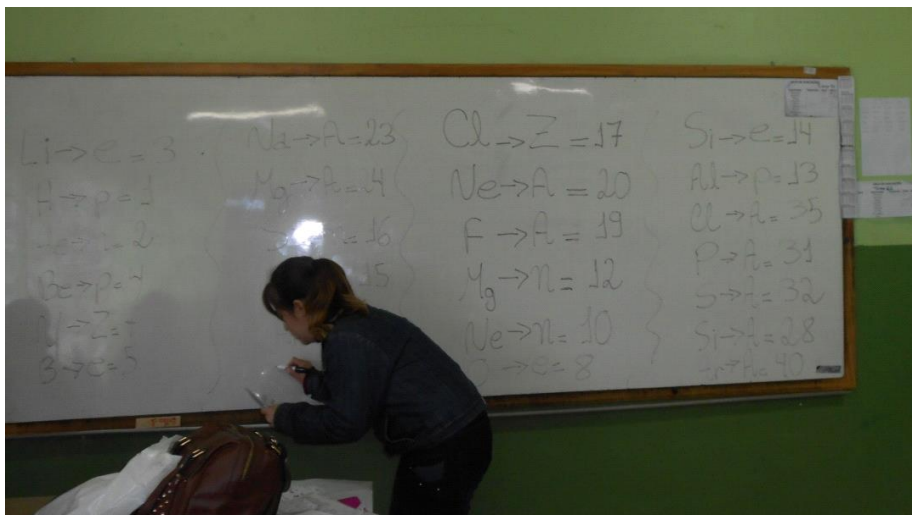 Li→e=3
H→p=1
Be→p=4
B→e=5
Na→A=23
Mg→A=24
=16
15
Cl→Z=17
Ne→A=20
F→A=19
Mg→n=12
Ne→n=10
→e=8
Si→e=14
Al→p=13
Cl→A=35
P→A=31
S→A=32
Si→A=28
Ar→A=40